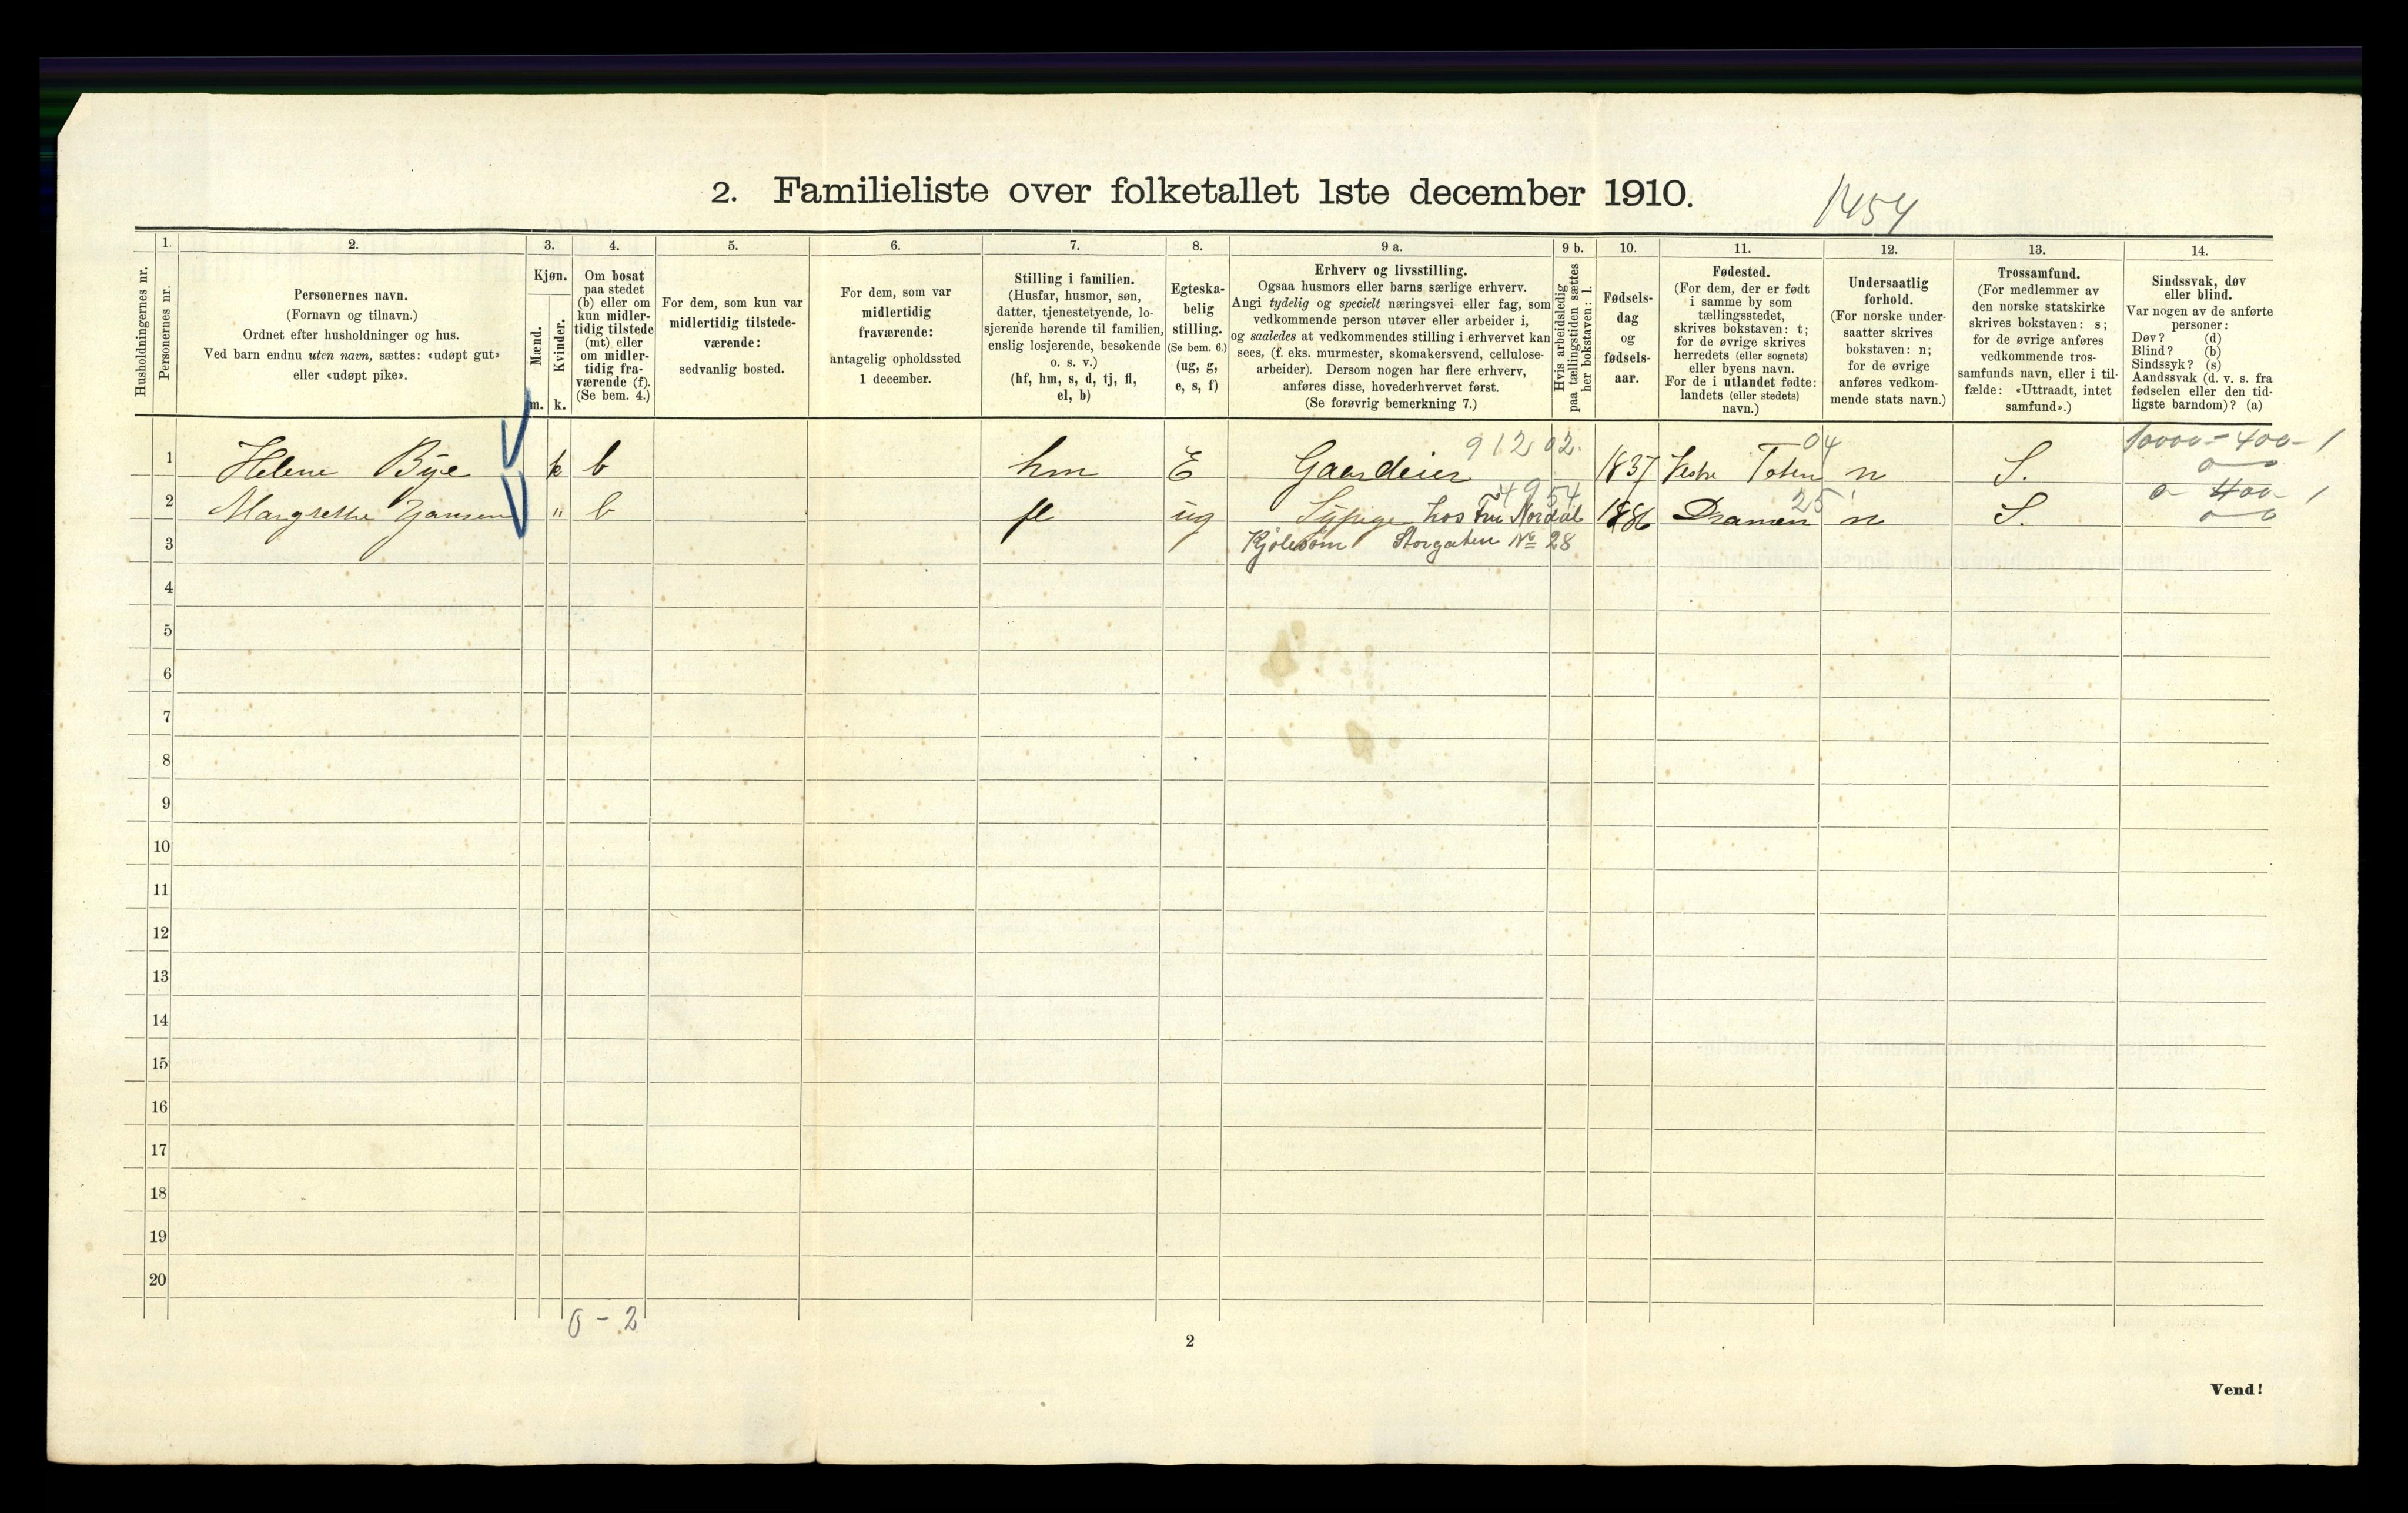 2. Familieliste over folketallet 1ste december 1910.
1454
1. 2. 3. 4. 5. 6. 7. 8. 9 a. 9 b. 10. 11. 12. 13. 14.
Husholdningernes nr.
Personernes nr.
Personernes navn.
(Fornavn og tilnavn.)
Ordnet efter husholdninger og hus.
Ved barn endnu uten navn, sættes: «udøpt gut»
eller «udøpt pike».
Kjøn.
Mænd.
Kvinder.
m. k.
Om bosat
paa stedet
(b) eller om
kun midler-
tidig tilstede
(mt) eller
om midler-
tidig fra-
værende (f).
(Se bem. 4.)
For dem, som kun var
midlertidig tilstede-
værende:
sedvanlig bosted.
For dem, som var
midlertidig
fraværende:
antagelig opholdssted
1 december.
Stilling i familien.
(Husfar, husmor, søn,
datter, tjenestetyende, lo-
sjerende hørende til familien,
enslig losjerende, besøkende
o. s. v.)
(hf, hm, s, d, tj, fl,
el, b)
Egteska-
belig
stilling.
(Se bem. 6.)
(ug, g,
e, s, f)
Erhverv og livsstilling.
Ogsaa husmors eller barns særlige erhverv.
Angi tydelig og specielt næringsvei eller fag, som
vedkommende person utøver eller arbeider i,
og saaledes at vedkommendes stilling i erhvervet kan
sees, (f. eks. murmester, skomakersvend, cellulose-
arbeider). Dersom nogen har flere erhverv,
anføres disse, hovederhvervet først.
(Se forøvrig bemerkning 7.)
Hvis arbeidsledig
paa tællingstiden sættes
her bokstaven: l.
Fødsels-
dag
og
fødsels-
aar.
Fødested.
(For dem, der er født
i samme by som
tællingsstedet,
skrives bokstaven: t;
for de øvrige skrives
herredets (eller sognets)
eller byens navn.
For de i utlandet fødte:
landets (eller stedets)
navn.)
Undersaatlig
forhold.
(For norske under-
saatter skrives
bokstaven: n;
for de øvrige
anføres vedkom-
mende stats navn.)
Trossamfund.
(For medlemmer av
den norske statskirke
skrives bokstaven: s;
for de øvrige anføres
vedkommende tros-
samfunds navn, eller i til-
fælde: «Uttraadt, intet
samfund».)
Sindssvak, døv
eller blind.
Var nogen av de anførte
personer:
Døv? (d)
Blind? (b)
Sindssyk? (s)
Aandssvak (d. v. s. fra
fødselen eller den tid-
ligste barndom)? (a)
912 02. 04 10000 - 400 - 1
1 Helene Bye k b hm E Gaardeier 1837 Vestre Toten n S. 0 0
4954 25 0 400 - 1
2 Margrethe Jansen " b fl ug Sypige hos Fru Nordal 1886 Dramen n S. 0 0
3 Kjolesöm Storgaten No 28
4
5
6
7
8
9
10
11
12
13
14
15
16
17
18
19
20
0 - 2
2
Vend!